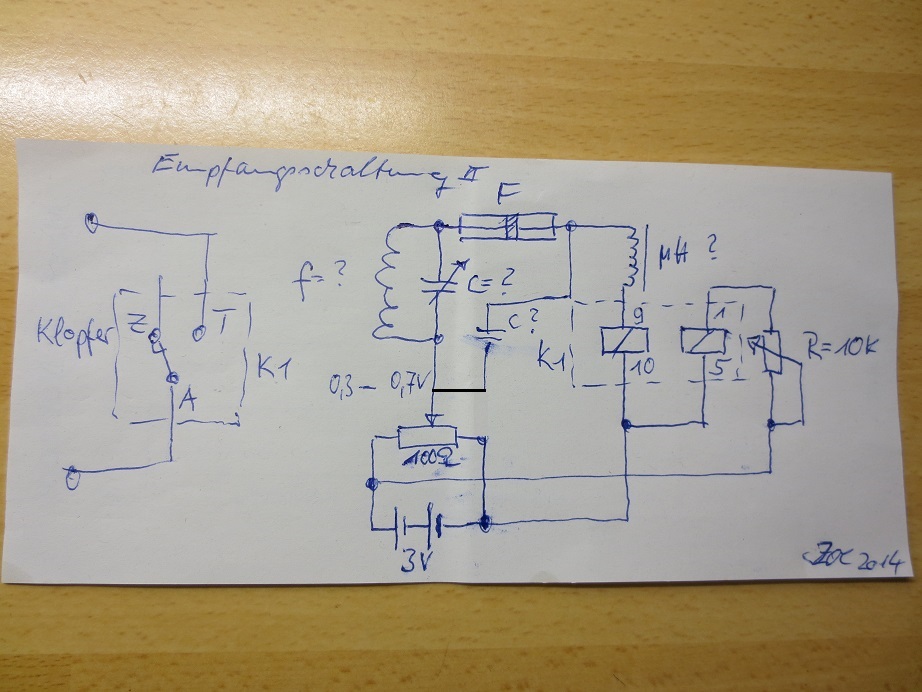 Empfangsschaltung II
F
f=?
C=?
µH ?
C?
Klopfer
Z
T
K1
A
0,3 – 0,7V
K1
9
10
1
5
R=10K
100Ω
3V
Zoc 2014